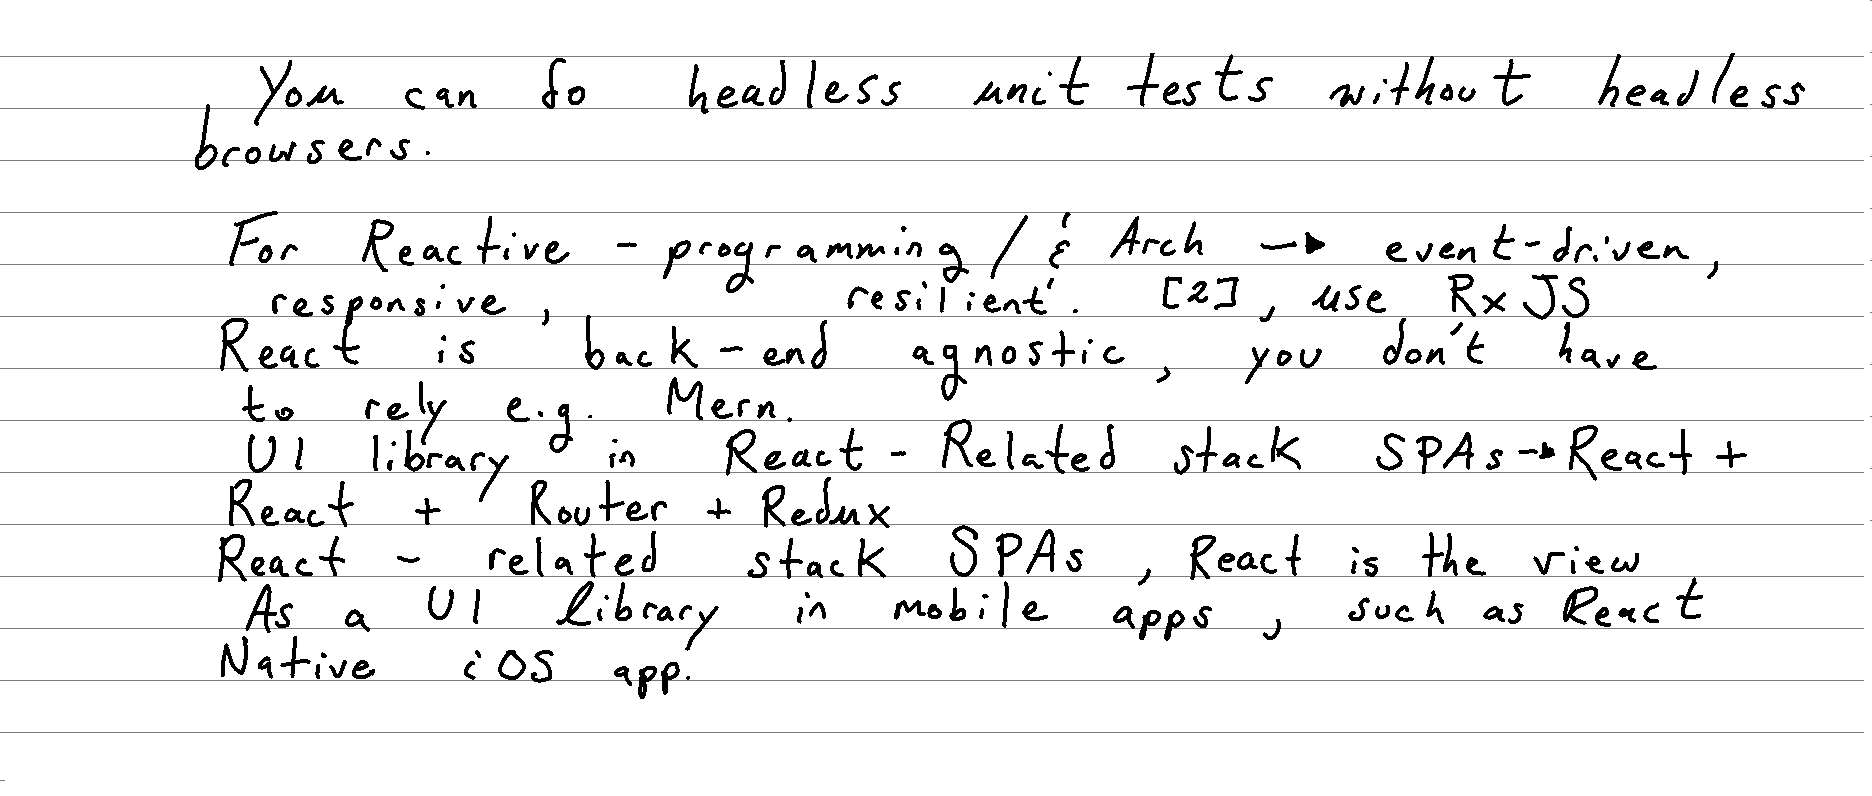 You can do headless unit tests without headless
browsers.
For Reactive - programming / & Arch → event-driven,
responsive, resilient. [2], use RxJS
React is back-end agnostic, you don't have
to rely e.g. Mern.
UI library in React - Related stack SPAs → React +
React + Router + Redux
React - related stack SPAs, React is the view
As a UI library in mobile apps, such as React
Native iOS app.